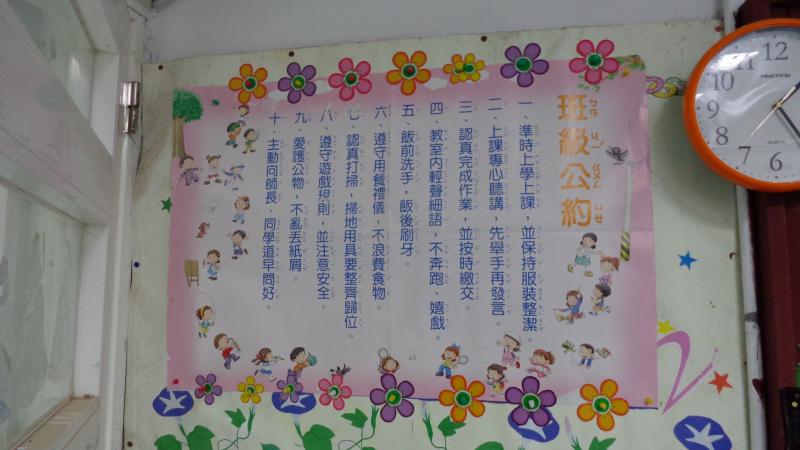 班級公約
一、準時上學上課，並保持服裝整潔。
二、上課專心聽講，先舉手再發言。
三、認真完成作業，並按時繳交。
四、教室內輕聲細語，不奔跑、嬉戲。
五、飯前洗手，飯後刷牙。
六、遵守用餐禮儀，不浪費食物。
七、認真打掃，掃地用具要整齊歸位。
八、遵守遊戲規則，並注意安全。
九、愛護公物，不亂丟紙屑。
十、主動向師長、同學道早問好。
12
11
10
9
8
7
6
5
PRACTICAL
QUARTZ